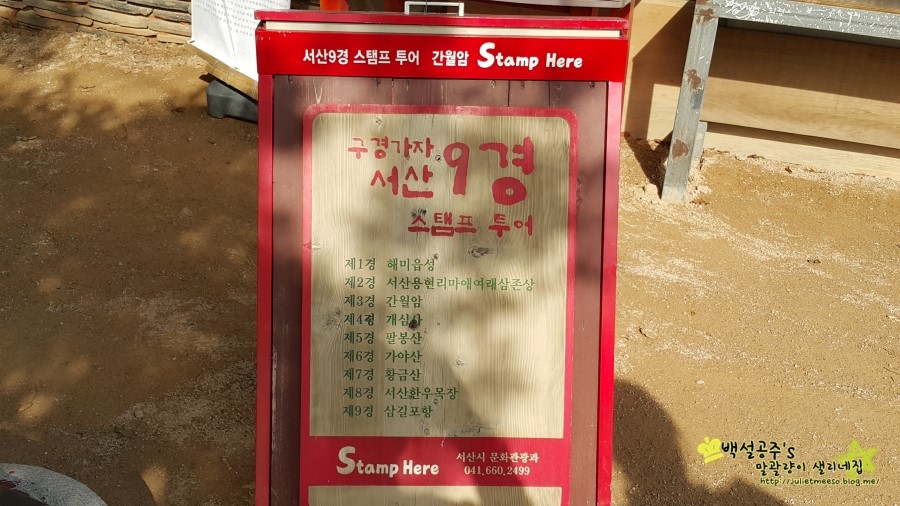 서산9경 스탬프 투어 간월암 Stamp Here
구경가자
서산 9경
스탬프 투어
제1경 해미읍성
제2경 서산용현리마애여래삼존상
제3경 간월암
제4경 개심사
제5경 팔봉산
제6경 가야산
제7경 황금산
제8경 서산한우목장
제9경 삼길포항
Stamp Here
서산시 문화관광과
041.660.2499
백설공주's
말괄량이 샐리네집
http://julietmeeso.blog.me/